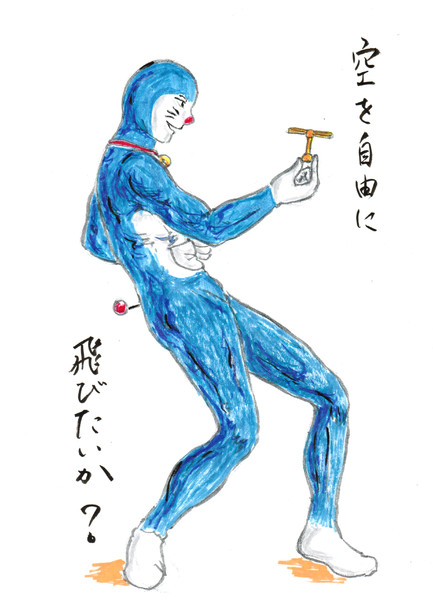 空を自由に
飛びたいか?